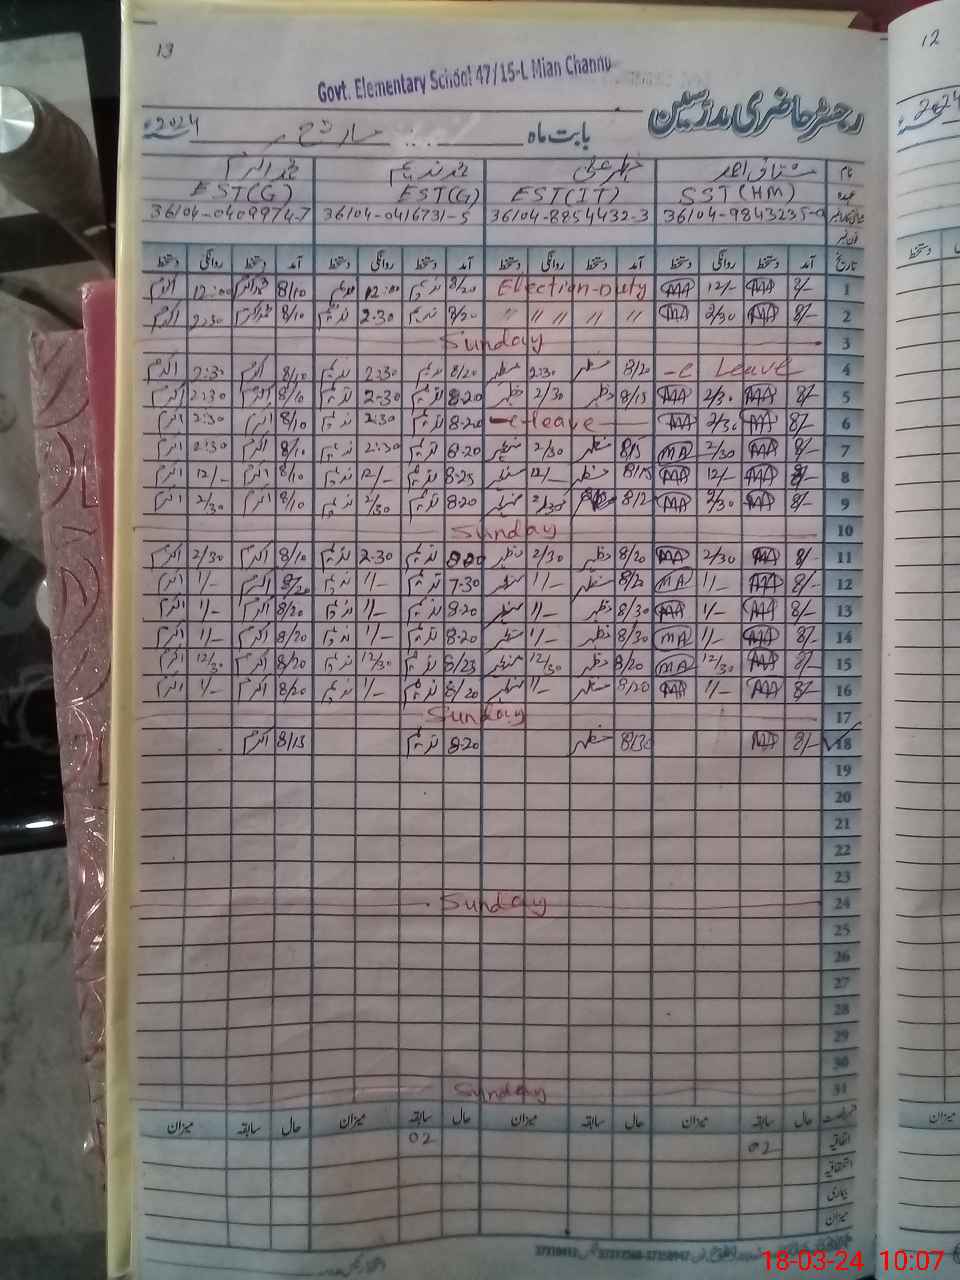 13
12
Govt. Elementary School 47/15-L Mian Channu
رجسٹر حاضری مدرسین
بابت ماہ مارچ 2024ء
2024
نام
EST(G) EST(G) EST(IT) SST(HM) عہدہ
36104-0409974-7 36104-0416731-5 36104-8854432-3 36104-9843235-9
فون نمبر
دستخط روانگی دستخط آمد دستخط روانگی دستخط آمد دستخط روانگی دستخط آمد دستخط روانگی دستخط آمد تاریخ
اکرم 12:00 8/10 ندیم 12:00 ندیم 8/20 Election-Duty MA 12/- MA 8/- 1
اکرم 2:30 8/10 ندیم 2.30 ندیم 8/20 〃 〃 〃 〃 〃 MA 2/30 MA 8/- 2
Sunday 3
اکرم 2:30 اکرم 8/10 ندیم 2:30 ندیم 8/20 2:30 8/20 -C Leave 4
اکرم 2:30 اکرم 8/10 ندیم 2-30 ندیم 8-20 2/30 8/15 MA 2/30 MA 8/- 5
اکرم 2:30 اکرم 8/10 ندیم 2:30 ندیم 8-20 -C-leave- MA 2/30 MA 8/- 6
اکرم 2:30 اکرم 8/10 ندیم 2:30 ندیم 8-20 2/30 8/15 MA 2/30 MA 8/- 7
اکرم 12/- اکرم 8/10 ندیم 12/- ندیم 8-25 12/- 8/15 MA 12/- MA 8/- 8
اکرم 2/30 اکرم 8/10 ندیم 2/30 ندیم 8-20 2/30 8/12 MA 2/30 MA 8/- 9
Sunday 10
اکرم 2/30 اکرم 8/10 ندیم 2-30 ندیم 8-20 2/30 8/20 MA 2/30 MA 8/- 11
اکرم 1/- اکرم 8/20 ندیم 1/- ندیم 7-30 1/- 8/20 MA 1/- MA 8/- 12
اکرم 1/- اکرم 8/20 ندیم 1/- ندیم 8-20 1/- 8/30 MA 1/- MA 8/- 13
اکرم 1/- اکرم 8/20 ندیم 1/- ندیم 8-20 1/- 8/30 MA 1/- MA 8/- 14
اکرم 12/30 اکرم 8/20 ندیم 12/30 ندیم 8/23 12/30 8/20 MA 12/30 MA 8/- 15
اکرم 1/- اکرم 8/20 ندیم 1/- ندیم 8/20 1/- 8/20 MA 1/- MA 8/- 16
Sunday 17
اکرم 8/15 ندیم 8-20 8/30 MA 8/- 18
19
20
21
22
23
Sunday 24
25
26
27
28
29
30
Sunday 31
میزان سابقہ حال میزان سابقہ حال میزان سابقہ حال میزان سابقہ حال
02 02 اتفاقیہ
استحقاقیہ
بیماری
میزان
18-03-24 10:07